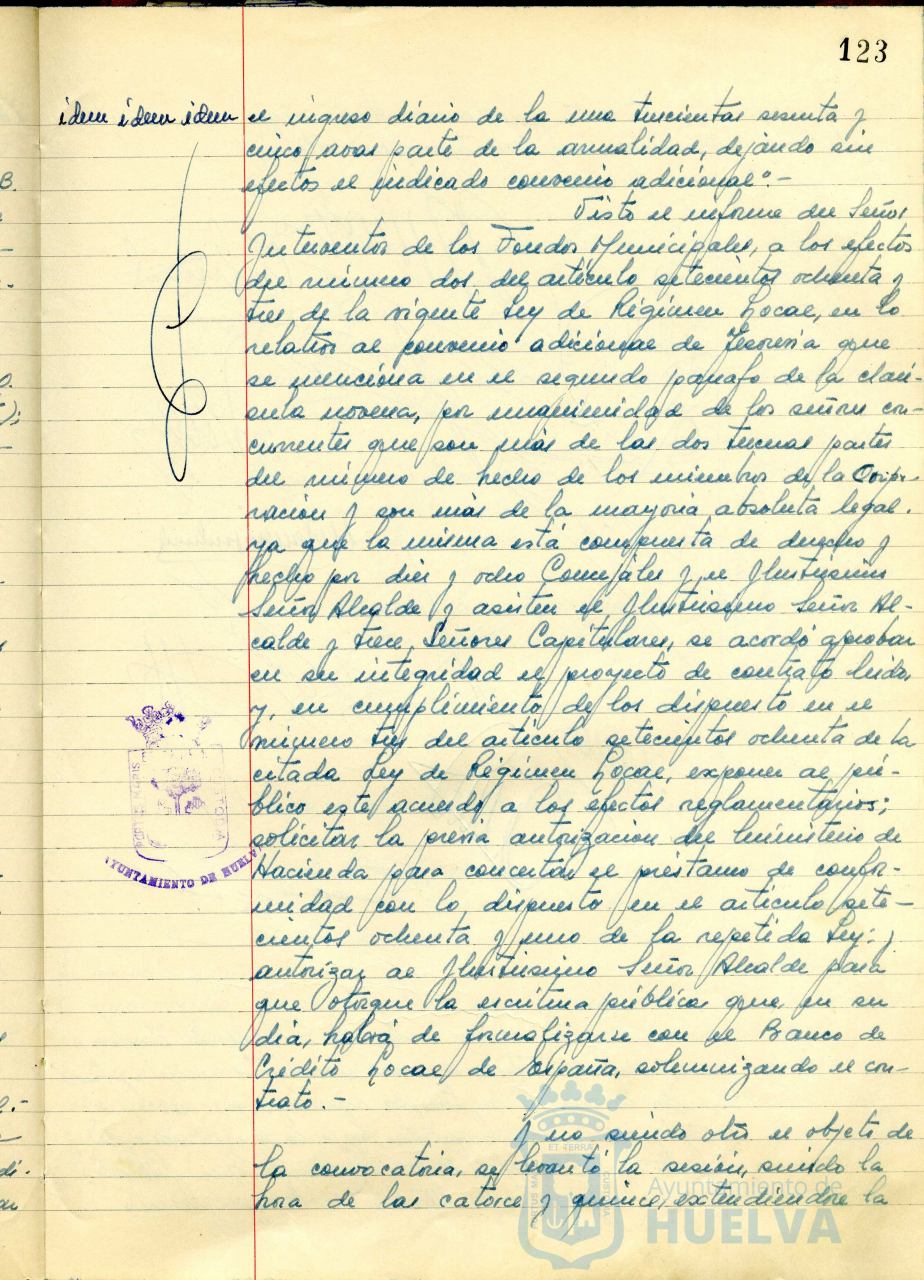 123
idem idem idem
el ingreso diário de la una trescientas sesenta y
cinco avas parte de la anualidad, dejándo sin
efectos el indicado convenio adicional".-
Visto el informe del Señor
Interventor de los Fondos Municipales, a los efectos
del número dos, del artículo setecientos ochenta y
tres, de la vigente Ley de Régimen Local, en lo
relativo al convenio adicional de Tesorería que
se menciona en el segundo párrafo de la cláu-
sula novena, por unanimidad de los señores con-
currentes que son más de las dos terceras partes
del número de hecho de los miembros de la Corpo-
ración y son más de la mayoría absoluta legal.
ya que la misma está compuesta de derecho y
hecho por diez y ocho Concejáles y el Ilustrísimo
Señor Alcalde y asisten el Ilustrísimo Señor Al-
calde y trece Señores Capitulares, se acordó aprobar
en su integridad el proyecto de contrato leido,
y, en cumplimiento de los dispuesto en el
número tres del artículo setecientos ochenta de la
citada Ley de Régimen Local, exponer al pú-
blico este acuerdo a los efectos reglamentários;
solicitar la previa autorización del Ministerio de
Hacienda para concertár el préstamo de confor-
midad con lo dispuesto en el artículo sete-
cientos ochenta y uno de la repetida Ley: y
autorizar al Ilustrísimo Señor Alcalde para
que otorgue la escritura pública que en su
día, habrá de formalizarse con el Banco de
Crédito Local de España, solemnizando el con-
trato.-
Y no siendo otro el objeto de
la convocatoria, se levantó la sesión, siendo la
hora de las catorce y quince, extendiendose la
AYUNTAMIENTO DE HUELVA
Ayuntamiento de
HUELVA